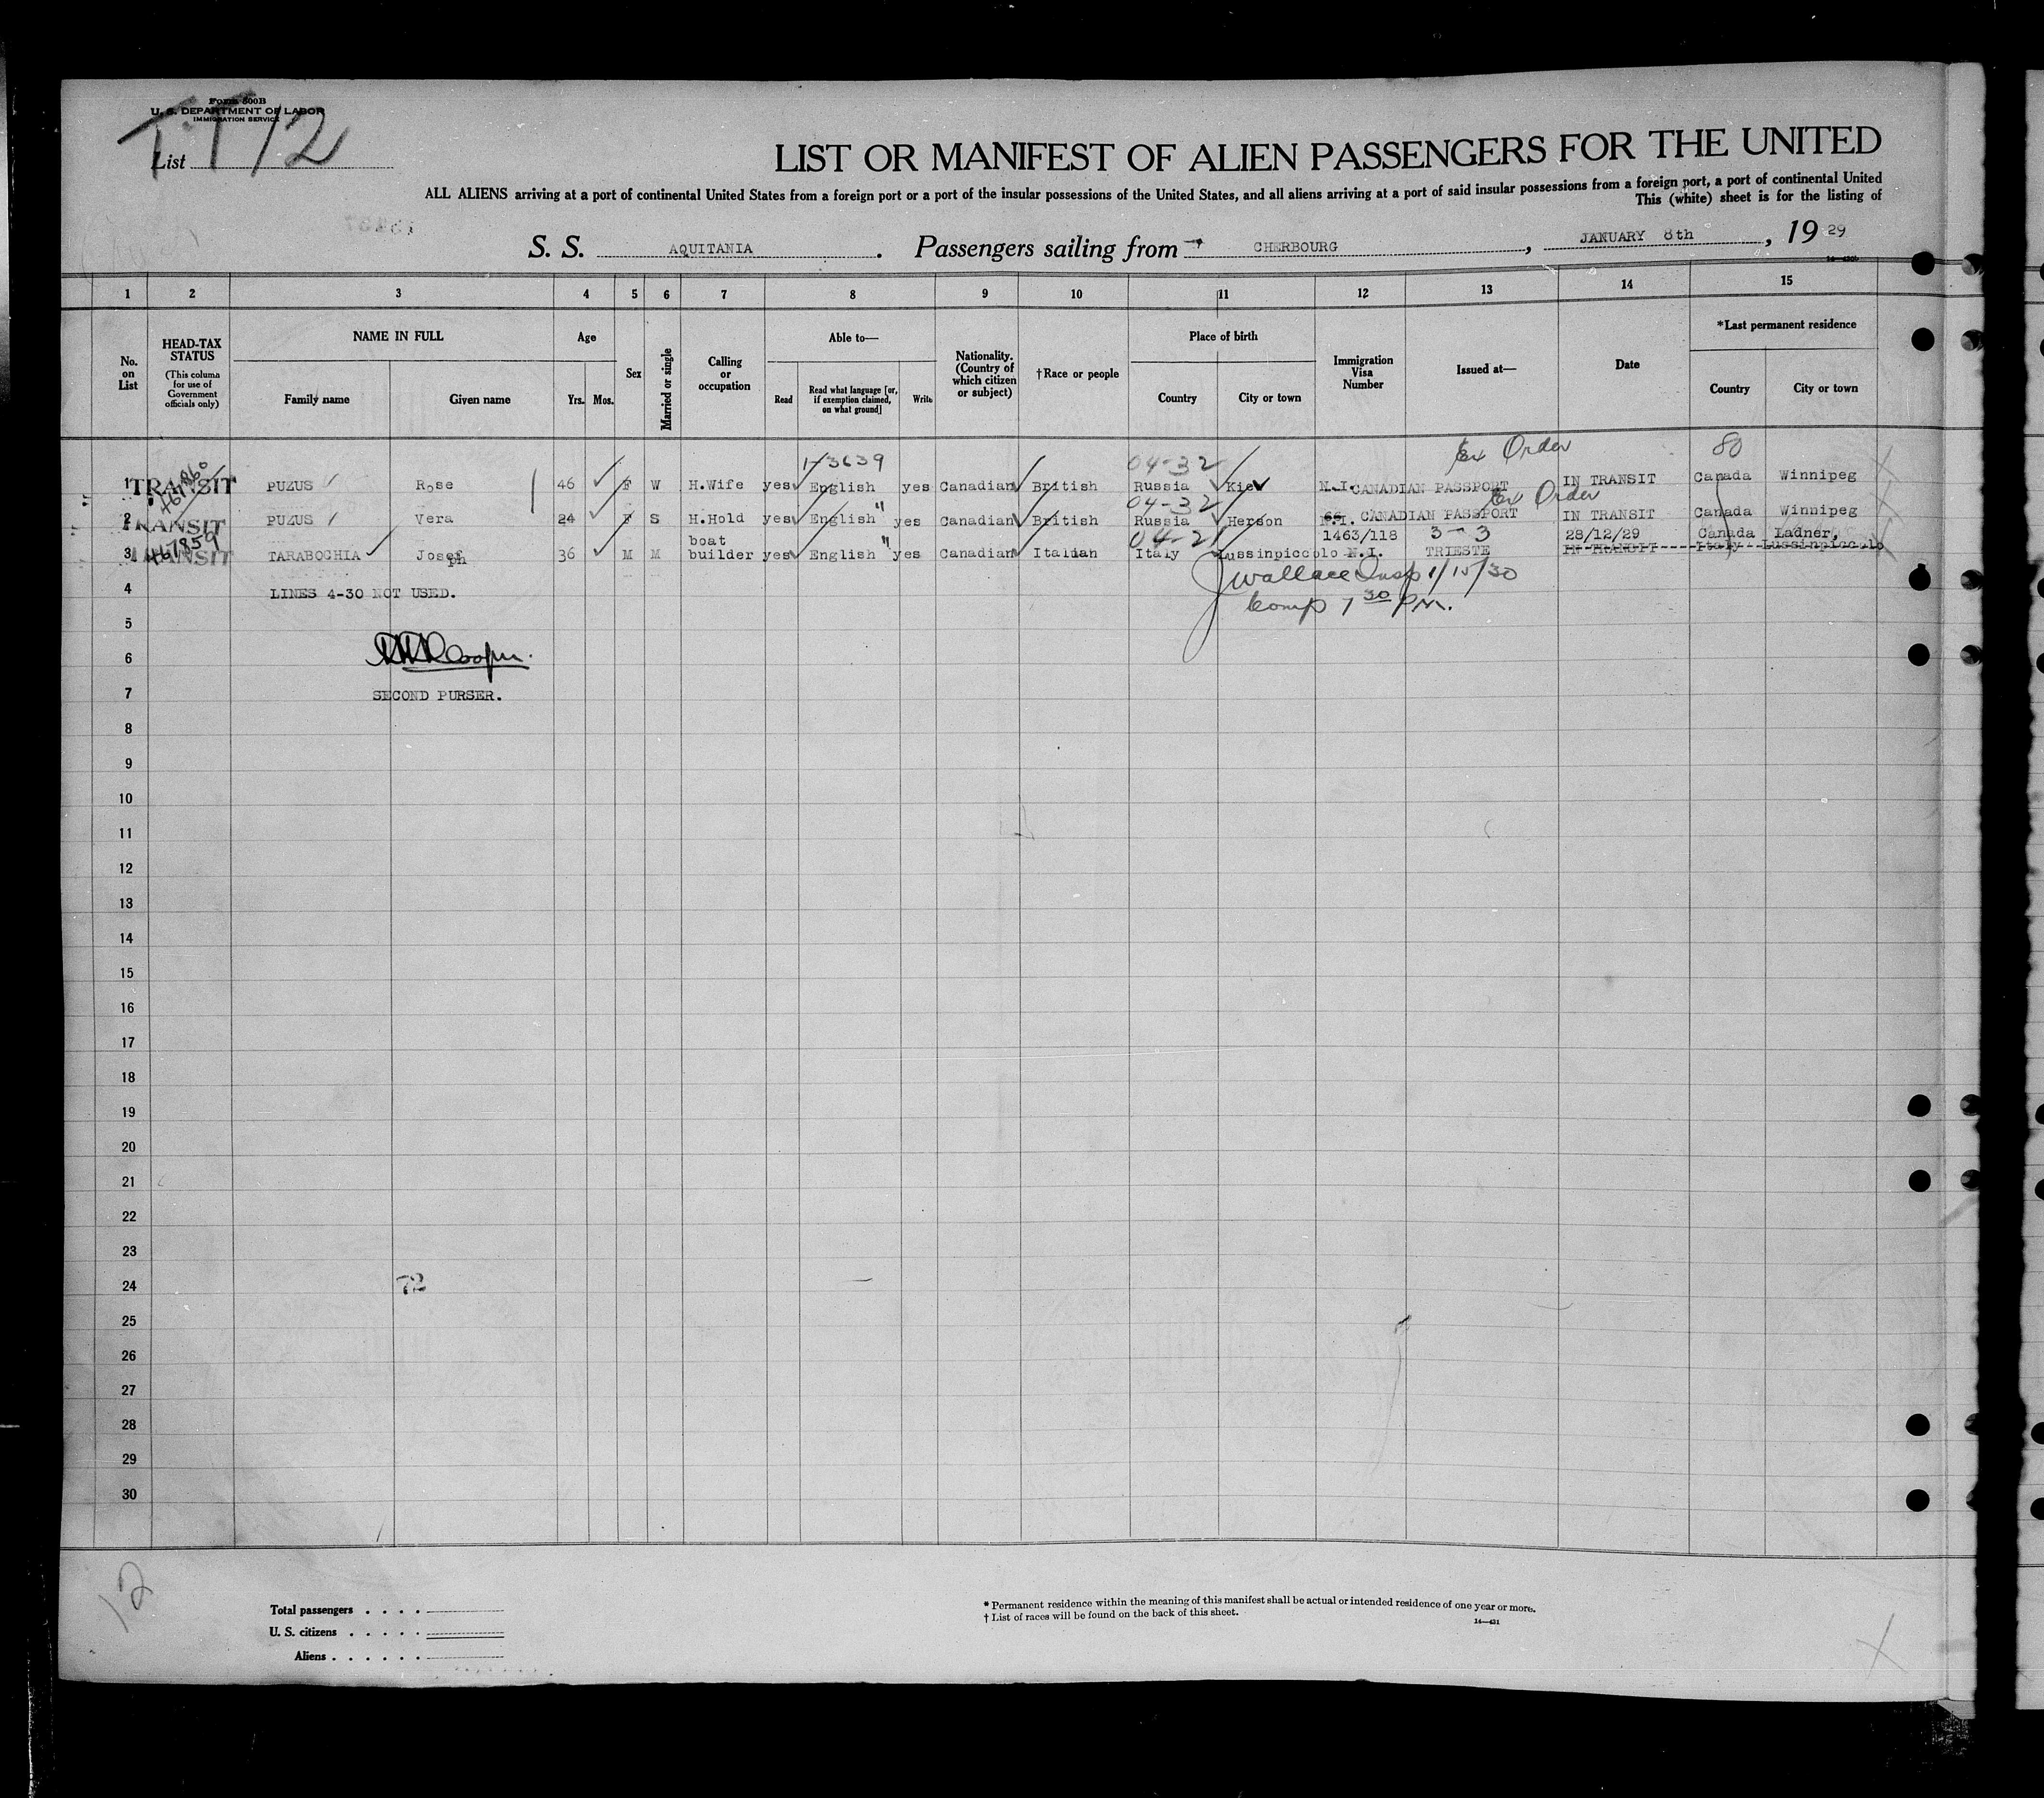 Form 500B
U. S. DEPARTMENT OF LABOR
IMMIGRATION SERVICE
List TT 12
LIST OR MANIFEST OF ALIEN PASSENGERS FOR THE UNITED
ALL ALIENS arriving at a port of continental United States from a foreign port or a port of the insular possessions of the United States, and all aliens arriving at a port of said insular possessions from a foreign port, a port of continental United
This (white) sheet is for the listing of
S. S. AQUITANIA. Passengers sailing from CHERBOURG, JANUARY 8th, 19 29
1 2 3 4 5 6 7 8 9 10 11 12 13 14 15
No. on List
HEAD-TAX STATUS
(This column for use of Government officials only)
NAME IN FULL
Family name Given name
Age
Yrs. Mos.
Sex
Married or single
Calling or occupation
Able to—
Read
Read what language [or, if exemption claimed, on what ground]
Write
Nationality. (Country of which citizen or subject)
†Race or people
Place of birth
Country City or town
Immigration Visa Number
Issued at—
Date
*Last permanent residence
Country City or town
1-3639 04-32 Ex Order 80
1 TRANSIT PUZUS Rose 46 F W H.Wife yes English yes Canadian British Russia Kiev N.I. CANADIAN PASSPORT IN TRANSIT Canada Winnipeg
04-32 Ex Order
2 TRANSIT PUZUS Vera 24 F S H.Hold yes English " yes Canadian British Russia Herson N.I. CANADIAN PASSPORT IN TRANSIT Canada Winnipeg
467859 boat 04-21 1463/118 3-3 28/12/29 Canada Ladner,
3 TRANSIT TARABOCHIA Joseph 36 M M builder yes English " yes Canadian Italian Italy Lussinpiccolo N.I. TRIESTE IN TRANSIT Italy Lussinpiccolo
J Wallace Insp 1/15/30
4 LINES 4-30 NOT USED.
Comp 7 30 PM.
5
6 Cooper.
7 SECOND PURSER.
8
9
10
11
12
13
14
15
16
17
18
19
20
21
22
23
24 72
25
26
27
28
29
30
12
Total passengers . . . .
U. S. citizens . . . . .
Aliens . . . . . .
* Permanent residence within the meaning of this manifest shall be actual or intended residence of one year or more.
† List of races will be found on the back of this sheet.
14—431